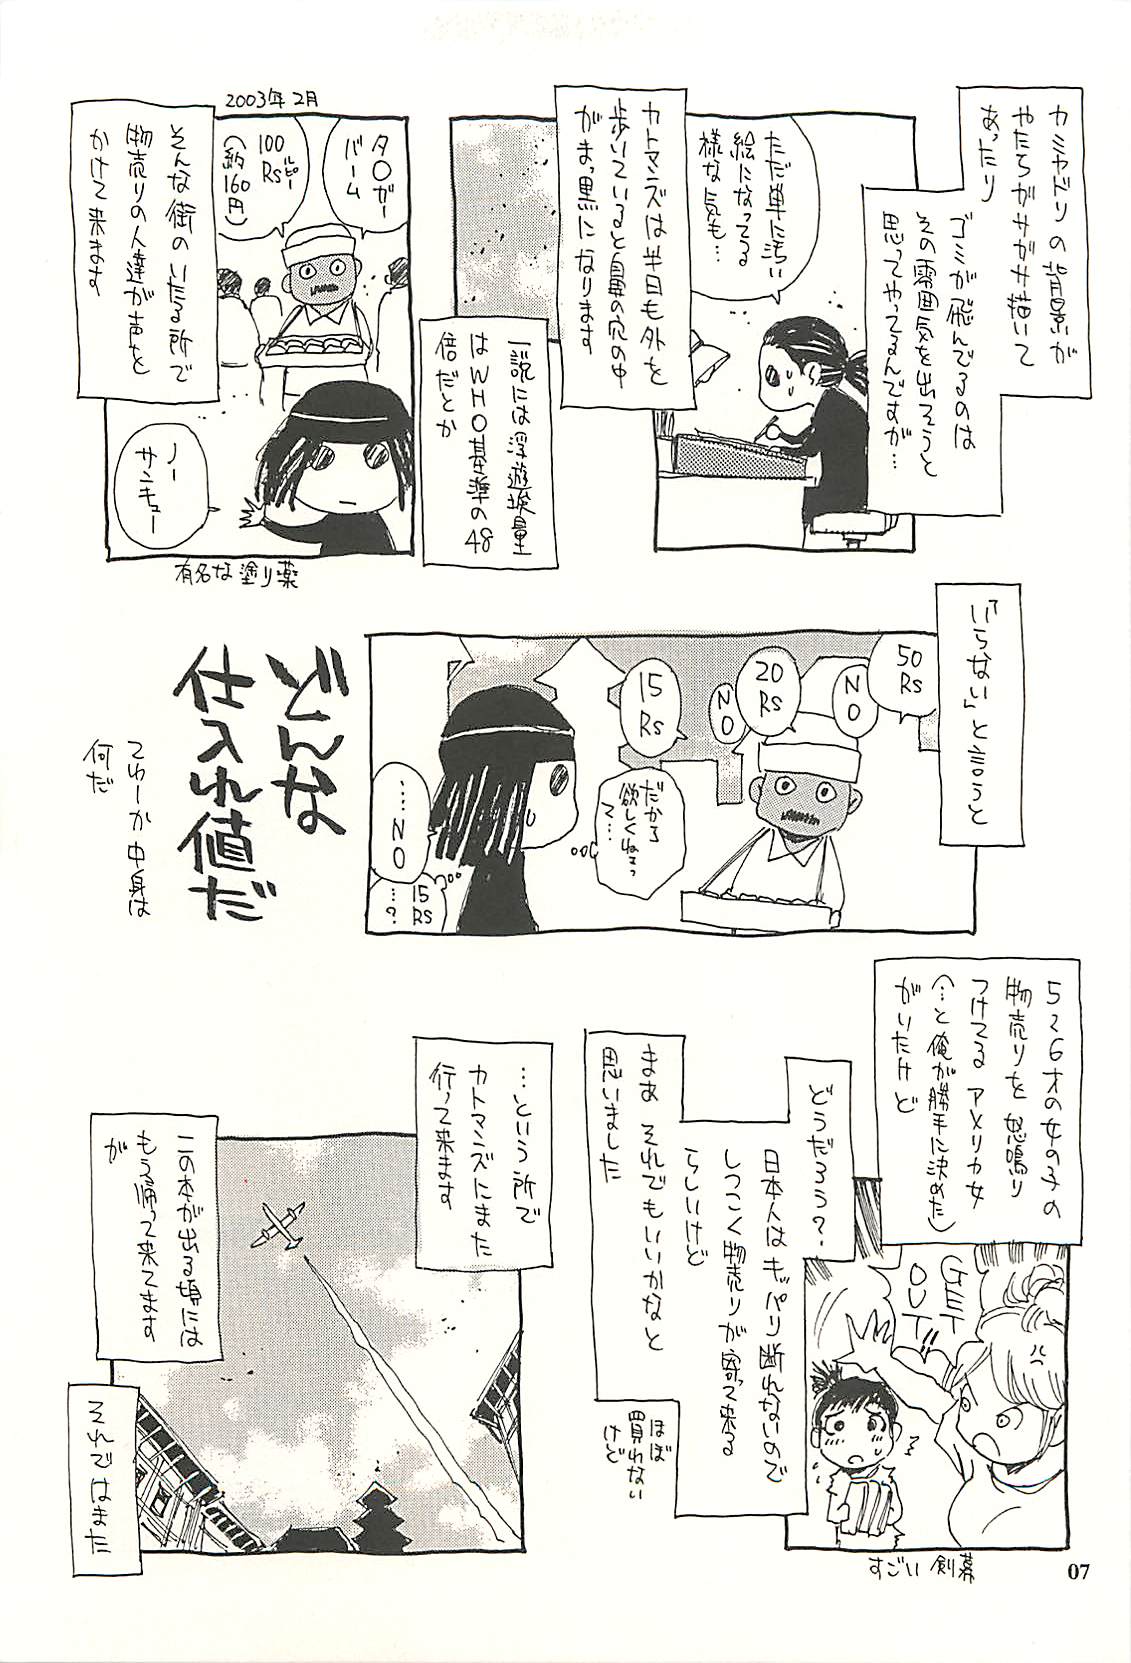 カミヤドリの背景が
やたらガサガサ描いて
あったり
ゴミが飛んでるのは
その雰囲気を出そうと
思ってやってるんですが…
ただ単に汚い
絵になってる
様な気も…
カトマンズは半日も外を
歩いていると鼻の穴の中
がまっ黒になります
一説には浮遊埃量
はWHO基準の48
倍だとか
2003年2月
そんな街のいたる所で
物売りの人達が声を
かけて来ます
タ○ガー
バーム
100ルピー
Rs
(約160円)
ノー
サンキュー
有名な塗り薬
「いらない」と言うと
50
Rs
NO
20
Rs
NO
15
Rs
だから
欲しくねーっ
て…
…NO
15
Rs
…?
どんな
仕入れ値だ
てゆーか中身は
何だ
5〜6才の女の子の
物売りを怒鳴り
つけてるアメリカ女
(…と俺が勝手に決めた)
がいたけど
GET
OUT!!
すごい剣幕
どうだろう?
日本人はキッパリ断れないので
しつこく物売りが寄って来る
らしいけど
まあそれでもいいかなと
思いました
ほぼ
買わない
けど
…という所で
カトマンズにまた
行って来ます
この本が出る頃には
もう帰って来てます
が
それではまた
07